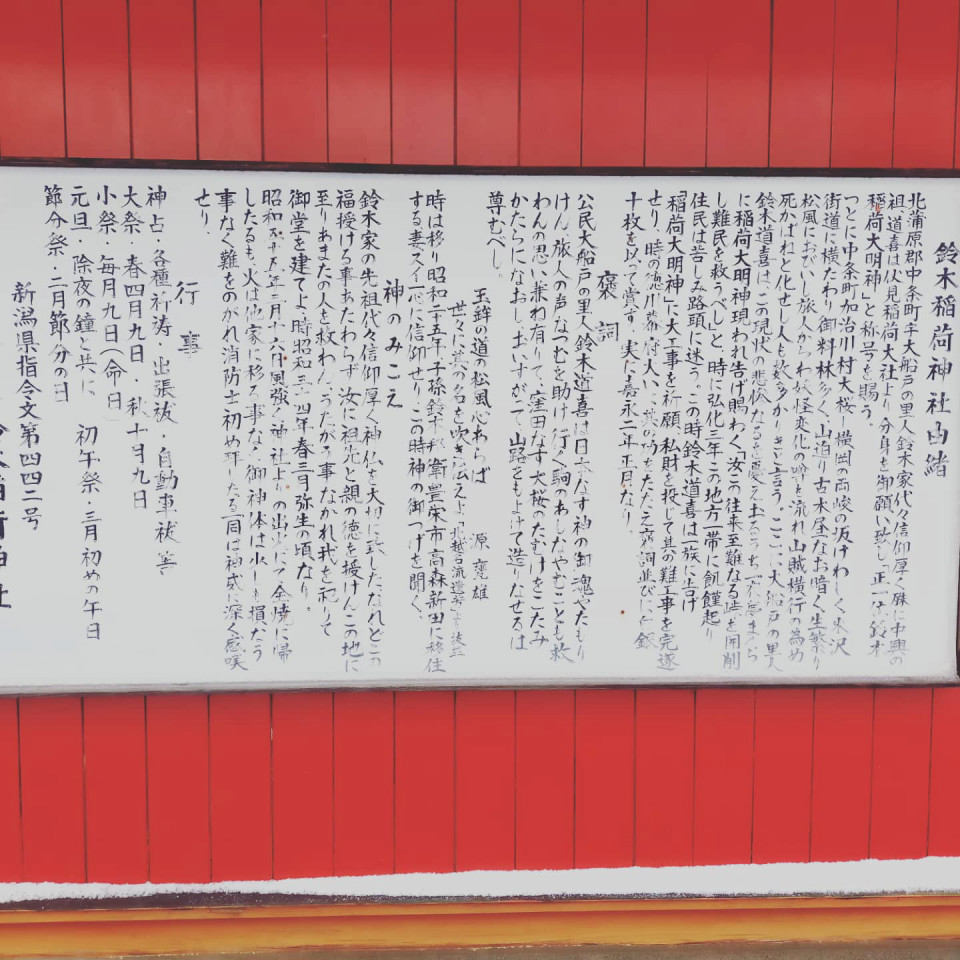 鈴木稲荷神社由緒
北蒲原郡中条町字大船戸の里人鈴木家代々信仰厚く殊に中興の
祖道喜は伏見稲荷大社より分身を御願い致し「正一位鈴木
稲荷大明神」と称号を賜う。
つとに中条町加治川村大桜・横岡の両峻の坂けわしく米沢
街道に横たわり御料林多く、山迫り古木昼なお暗く生繁り
松風におびいし旅人からわ妖怪変化の噂も流れ山賊横行の為め
死かばねと化せし人も数多かりきと言う。ここに大船戸の里人
鈴木道喜は、この現状の悲惨なるを憂え
に稲荷大明神現われ告げ賜わく「汝この往来至難なる峠を開削
し難民を救うべし」と、時に弘化三年この地方一帯に飢饉起り
住民は苦しみ路頭に迷う。この時鈴木道喜は一族に告げ
「稲荷大明神」に大工事を祈願、私財を投じて其の難工事を完遂
せり、時の徳川幕府大いに其の功をたたえ褒詞並びに白銀
十枚を以って賞す、実に嘉永二年正月なり。
褒詞
公民大船戸の里人鈴木道喜は日本なす神の御魂やたもり
けん、旅人の声なつむを助け行く駒のあしなやむことも救
わんの思い兼ね有りて、窪田なす大桜のたむけをこたみ
かたらになおし、土いすがて山路をもよけて造りなせるは
尊むべし。
玉鉾の道の松風心あらば 源寛雄
世々に其の名を吹き伝えよ
時は移り昭和二十五年子孫鈴木 豊栄市高森新田に移住
する妻スイ一心に信仰せりこの時神の御つげを聞く、
神のみこえ
鈴木家の先祖代々信仰厚く神仏を大切に致したなれどこの
福授ける事あたわらず汝に祖先と親の徳を授けんこの地に
至りあまたの人を救わん、うたがう事なかれ我を祀りて
御堂を建てよ、時昭和三十四年春三月弥生の頃なり。
昭和 年三月十六日風強く神社よりの出火にて全焼に帰
したるも、火は他家に移る事なく御神体は水一も損だう
事なく難をのがれ消防士初め拝したる一同は神威に深く感嘆
せり。
行事
神占・各種祈祷・出張祓・自動車祓等
大祭・春四月九日・秋十月九日
小祭・毎月九日(命日)
元旦・除夜の鐘と共に 初午祭・三月初めの午日
節分祭・二月節分の日
新潟県指令文第四四二号